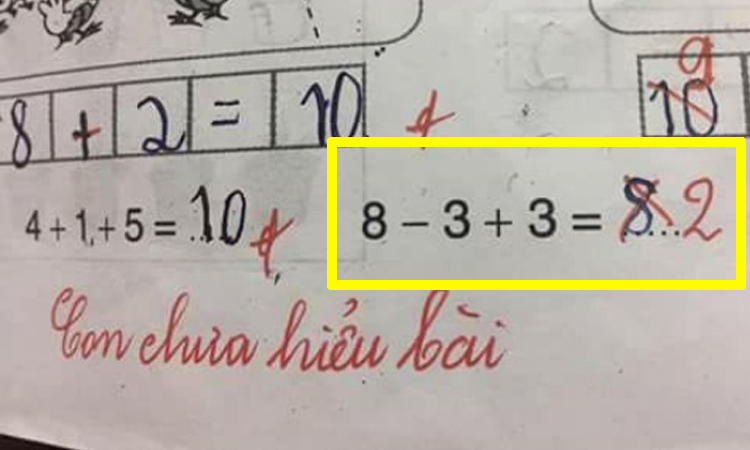 9
8 + 2 = 10 đ 10
4 + 1 + 5 = 10 đ 8 – 3 + 3 = 8 2
Con chưa hiểu bài